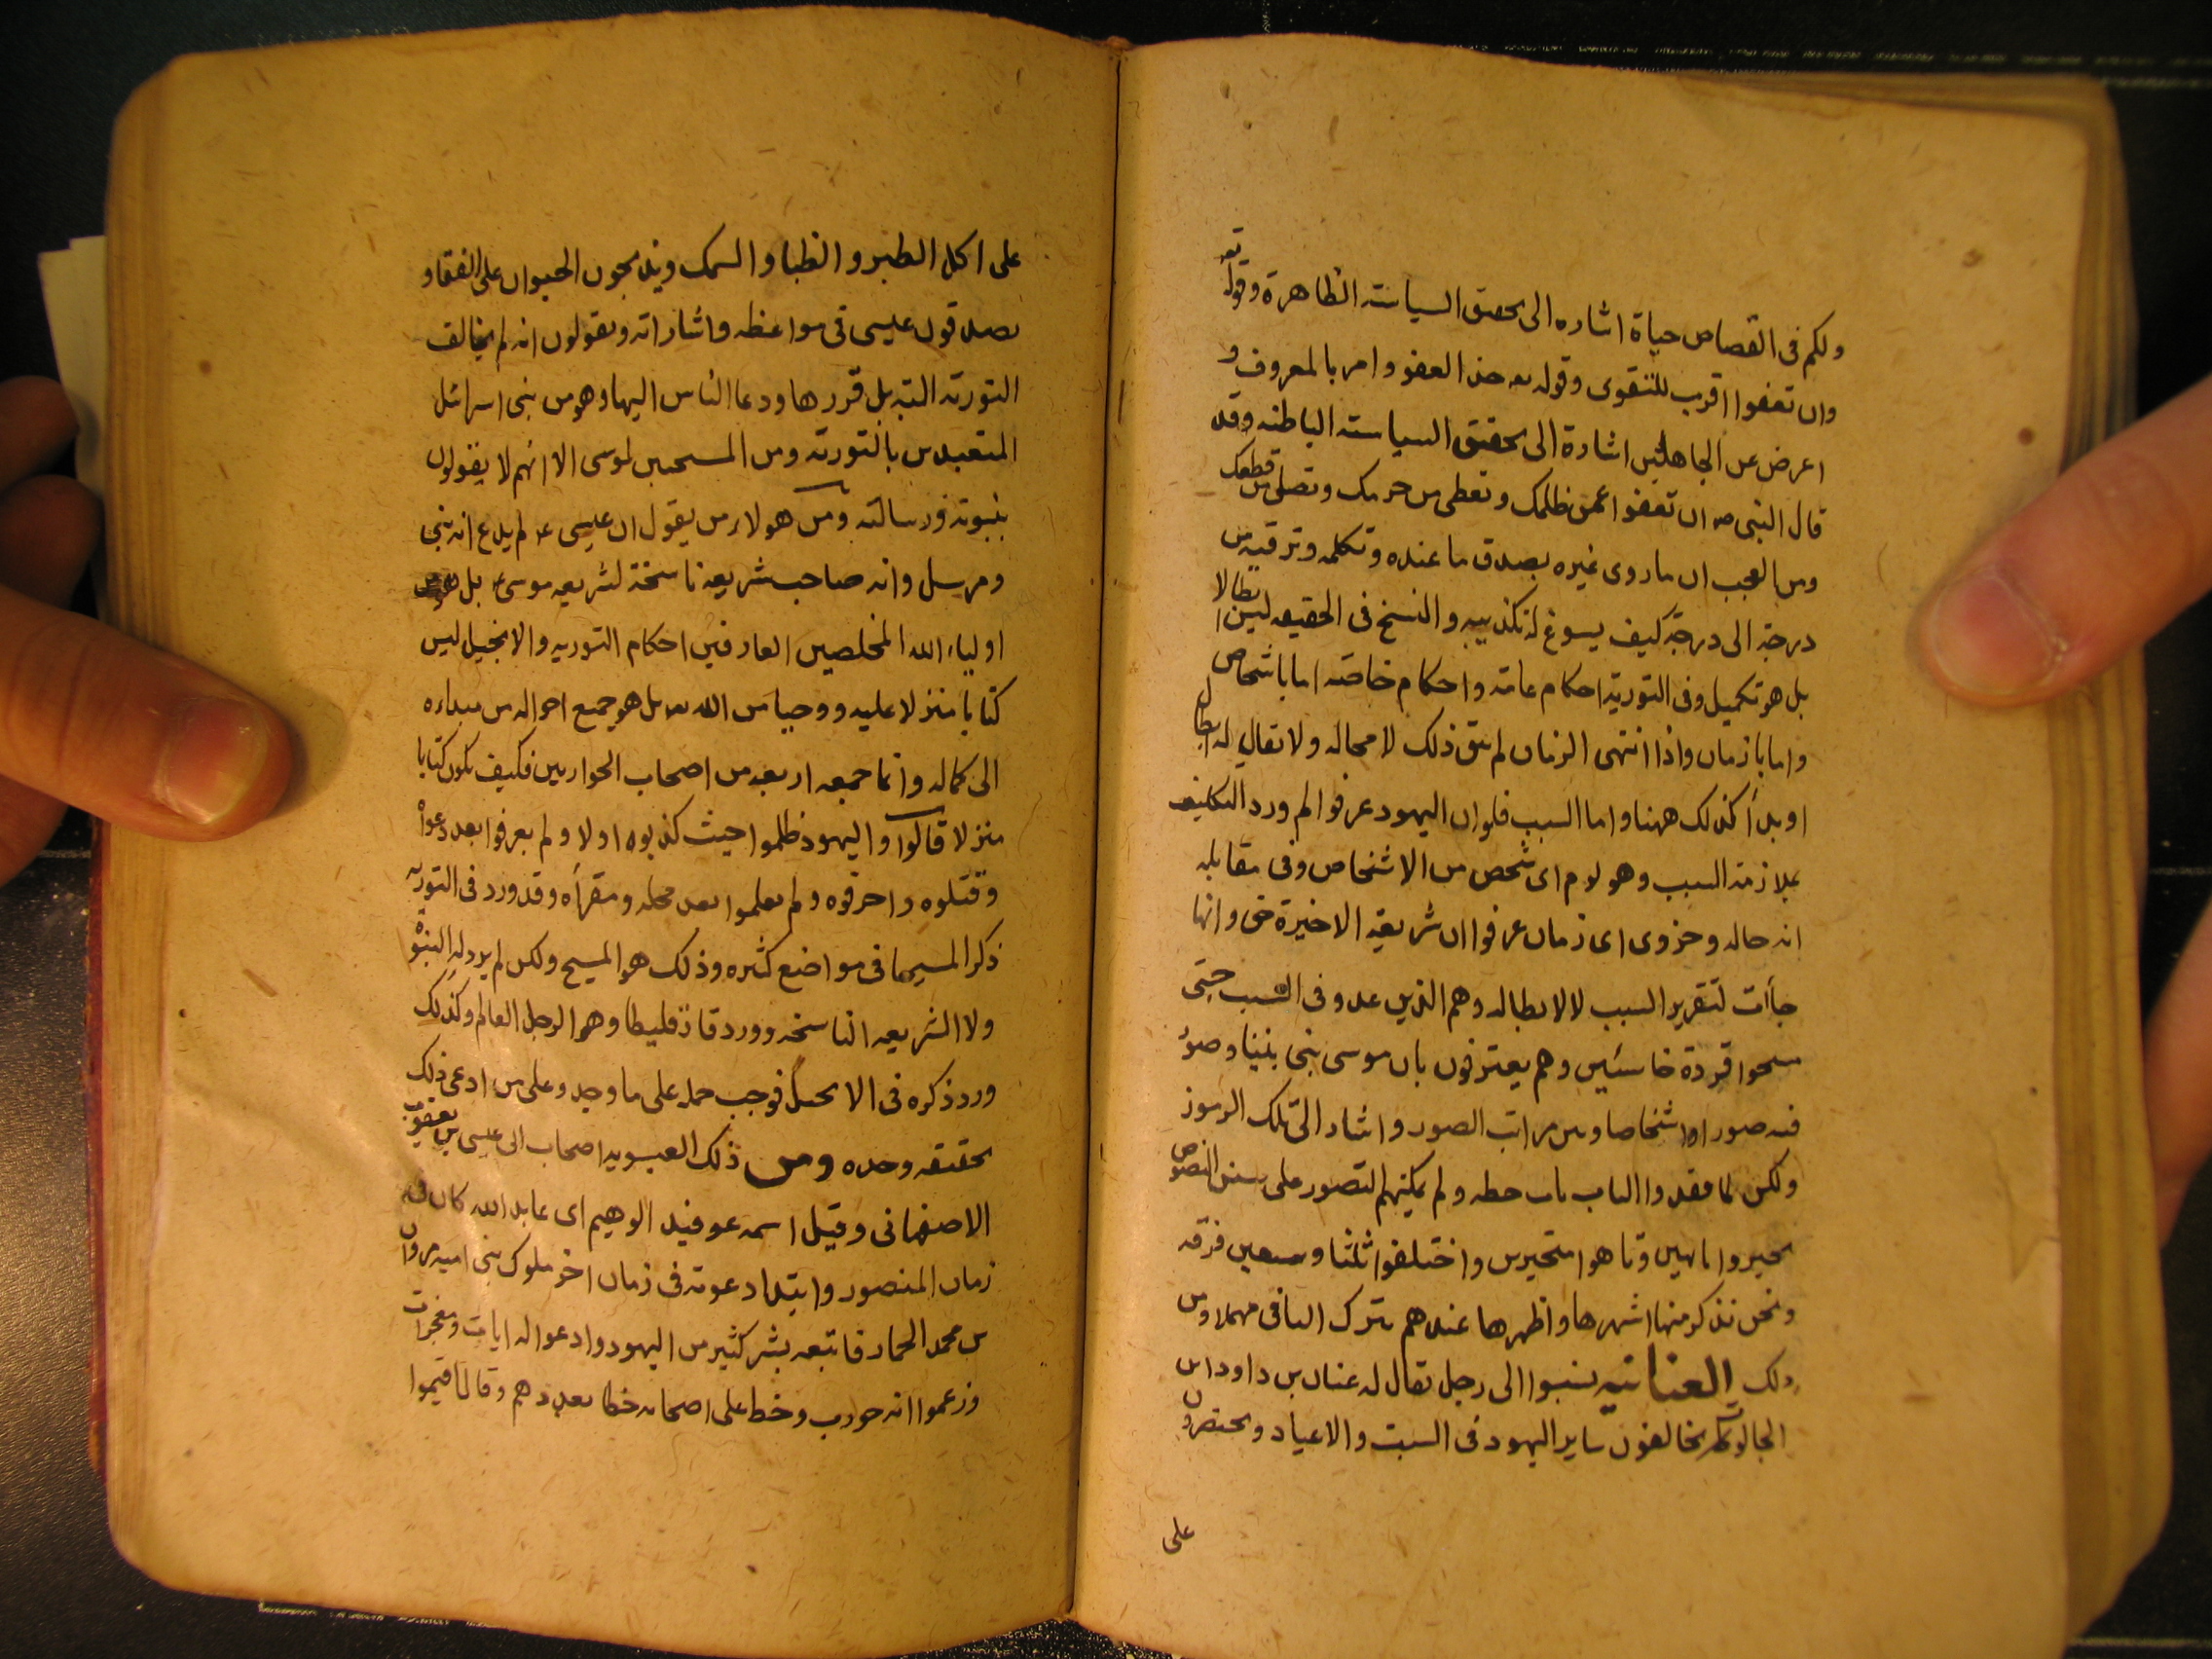 ولكم فى القصاص حياة اشاره الى تحقيق السياسته الظاهرة وقوله تع
وان تعفوا اقرب للتقوى وقوله تعه خذ العفو وامر بالمعروف و
اعرض عن الجاهلين اشارة الى تحقيق السياسته الباطنه وقد
قال النبى صه ان تعفوا عمن ظلمك وتعطى من حرمك وتصل من قطعك
ومن العجب ان ما روى غيره يصدق ما عنده وتكلمه وترقيه من
درجة الى درجة كيف يسوغ له تكذيبه والنسخ فى الحقيقه ليس ابطالا
بل هو تكميل وفى التورية احكام عامة واحكام خاصة اما باشخاص
واما بازمان واذا انتهى الزمان لم يبق ذلك لا محاله ولا يقال له ابطال
او بدأ كذلك ههنا واما السبب فلو ان اليهود عرفوا لم ورد التكليف
بملازمة السبب وهو لوم اى شخص من الاشخاص وفى مقابله
انه حاله وجزوى اى زمان عرفوا ان شريعة الاخيرة حق وانها
جاأت لتقرير السبب لا لابطاله وهم الذين عدو فى السبب حتى
مسحوا قردة خاسئين وهم يعترفون بان موسى بنى بنينا وصور
فيه صورا واشخاصا وبين مراتب الصور واشار الى تلك الرموز
ولكن لما فقدوا الباب باب حطه ولم يمكنهم التصور على سنن اللصوص
تحيروا تايهين وتاهوا متحيرين واختلفوا ثلثا وسبعين فرقه
ونحن نذكر منها اشهرها واظهرها عندهم نترك الباقى مهملا ومن
ذلك العنانيه ينسبوا الى رجل يقال له عنان بن داود راس
الجالوت يخالفون ساير اليهود فى السبت والاعياد ويختصرون
على
على اكل الطير والظبا والسمك ويذبحون الحيوان على القفا و
يصدقون عيسى فى مواعظه واشاراته ويقولون انه لم يخالف
التورية البته بل قررها ودعا الناس اليها وهو من بنى اسرائل
المتعبدين بالتورية ومن المسحيين لموسى الا انهم لا يقولون
بنبوته ورسالته ومن هولاء من يقول ان عيسى ع لم يدع انه نبى
ومرسل وانه صاحب شريعة ناسخة لشريعه موسى ع بل هو من
اولياء الله المخلصين العارفين احكام التوريه والانجيل ليس
كتابا منزلا عليه ووحيا من الله تعه بل هو جميع احواله من مبداءه
الى كماله وانما جمعه اربعه من اصحاب الحواريين فكيف يكون كتابا
منزلا قالوا واليهود ظلموا حيث كذبوه اولا ولم يعرفوا بعد دعواه
وقتلوه واحرقوه ولم يعلموا بعد محله ومقرأه وقد ورد فى التورية
ذكر المسيحا فى مواضع كثيره وذلك هو المسيح ولكن لم يرد له النبوة
ولا الشريعه الناسخه وورد قارقليطا وهو الرجل العالم وكذلك
ورد ذكره فى الانجيل فوجب حمله على ما وجد وعلى من ادعى ذلك
تحقيقه وحده ومن ذلك العيسويه اصحاب الى عيسى بن يعقوب
الاصفهانى وقيل اسمه عوفيد الوهيم اى عابد الله كان فى
زمان المنصور وابتداد عوته فى زمان اخر ملوك بنى اميه مروان
بن محمد الحمار فاتبعه بشر كثير من اليهود وادعوا له ايات ومعجزات
وزعموا انه حورب وخط على اصحابه خطا بعد دهم وقال اقيموا